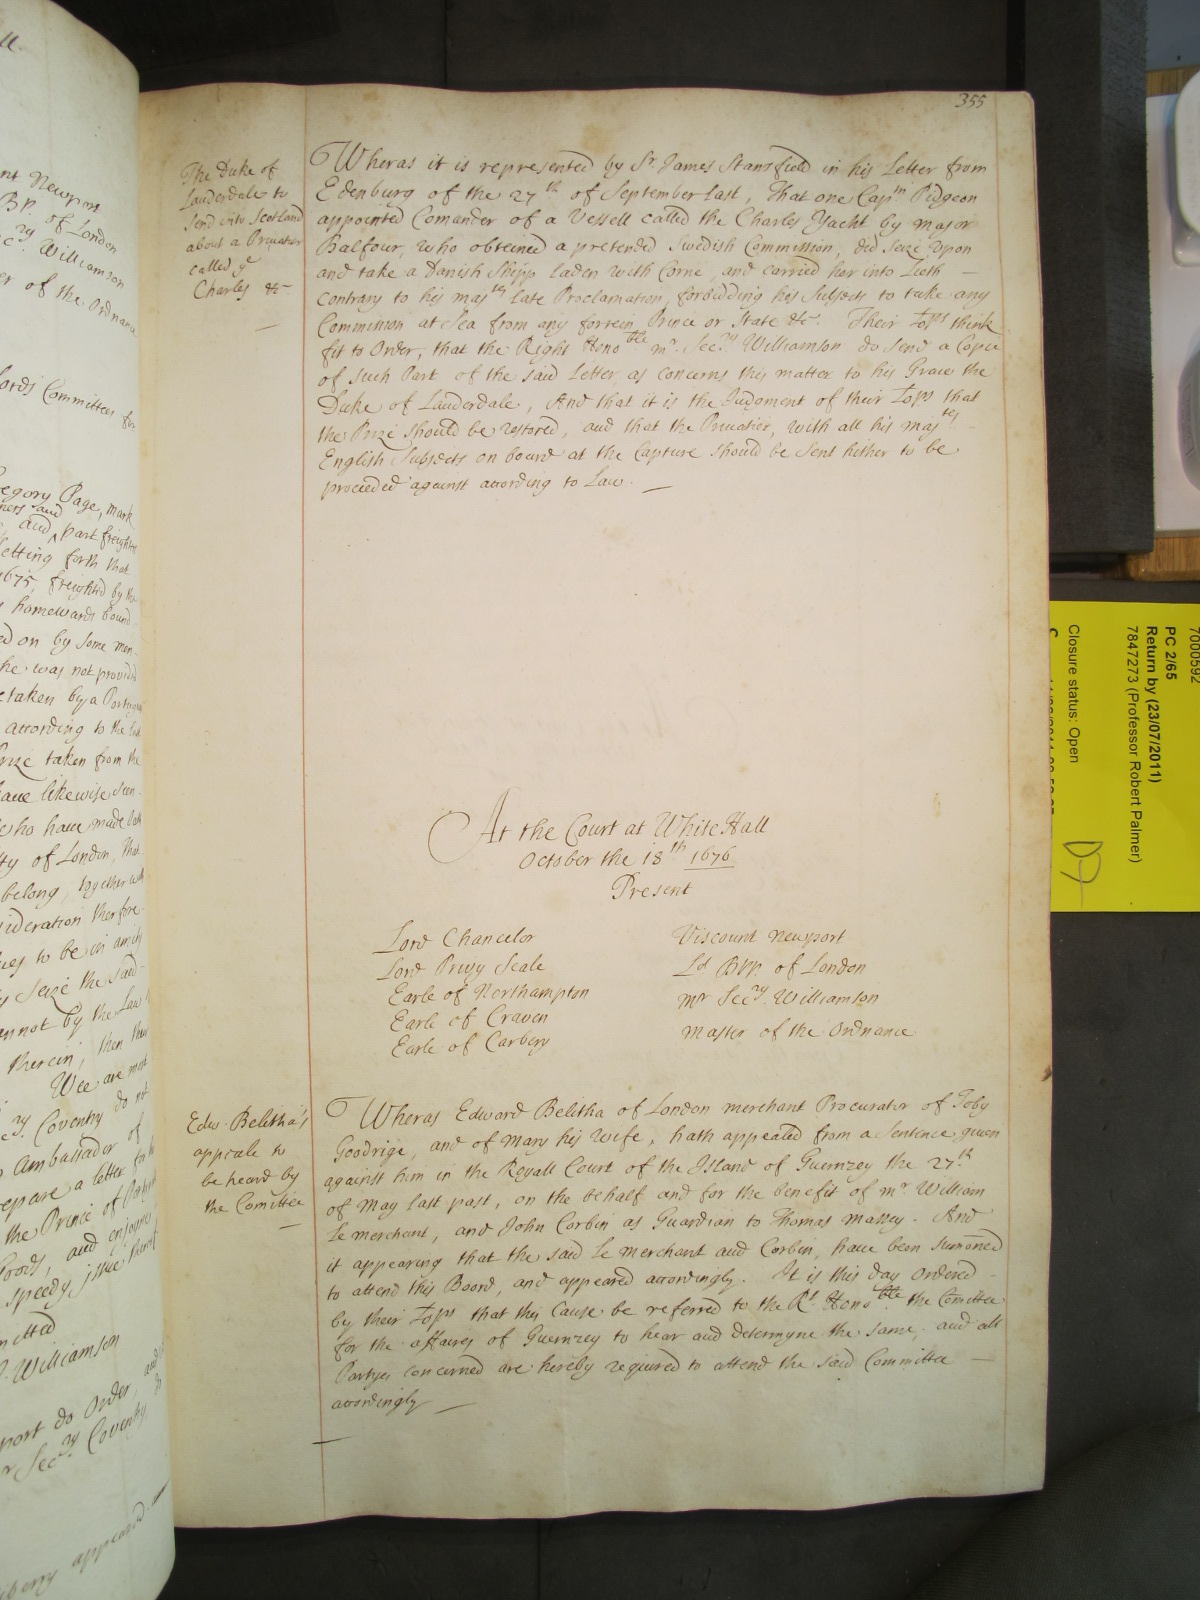 355
The Duke of
Lauderdale to
Send into Scotland
about a Privatier
called ye
Charles &c
Wheras it is represented by Sr. James Stansfield in his Letter from
Edenburg of the 27th of September last, That one Capn Pidgeon
appointed Comander of a Vessell called the Charles Yacht by major
Balfour, who obteined a pretended Swedish Commission, did seize upon
and take a Danish Shipp laden with Corne, and carried her into Lieth
contrary to his mats late Proclamation, forbidding his Subjects to take any
Commission at Sea from any forrein Prince or State &c. Their Lopps think
fit to Order, that the Right Honoble mr. Secry Williamson do send a Copie
of such Part of the said Letter, as concerns this matter to his Grace the
Duke of Lauderdale, And that it is the Judgment of their Lopps that
the Prize should be restored, and that the Privatier, with all his mats
English Subjects on board at the Capture should be sent hither to be
proceeded against according to Law.
At the Court at White Hall
October the 18th 1676
Present
Lord Chancelor
Lord Privy Seale
Earle of Northampton
Earle of Craven
Earle of Carbery
Viscount Newport
Ld Bpp. of London
mr Secry. Williamson
Master of the Ordnance
Edw. Belitha's
appeale to
be heard by
the Comittee
Wheras Edward Belitha of London merchant Procurator of Toby
Goodrige, and of Mary his Wife, hath appealed from a Sentence given
against him in the Royall Court of the Island of Guernzey the 27th.
of May last past, on the behalf and for the benefit of mr. William
Le merchant, and John Corbin as Guardian to Thomas Massey. And
it appearing that the said Le merchant and Corbin, have been sumoned
to attend this Board, and appeared accordingly. It is this day Ordered
by their Lopps that this Cause be referred to the Rt. Honoble the Comittee
for the affaires of Guernzey to hear and determyne the same, and all
Partyes concerned are hereby required to attend the said Committee
accordingly
7000592
PC 2/65
Return by (23/07/2011)
7847273 (Professor Robert Palmer)
Closure status: Open
nt Newport
Bp. of London
Williamson
er of the Ordnance
Lords Committees for
regory Page, mark
and part freighters
setting forth that
1675, freighted by the
homewards bound
ed on by some men
he was not provided
retaken by a
according to the
Prize taken from the
have likewise
who have made
ty of London, that
belong, together
sideration therfore
to be in amity
seize the said
annot by the Law
therein, then
Wee are
Coventry do
Ambassador of
repare a letter
the Prince of
Goods, and
speedy issue
mitted
Williamson
port do Order
Secry Coventry
appeared